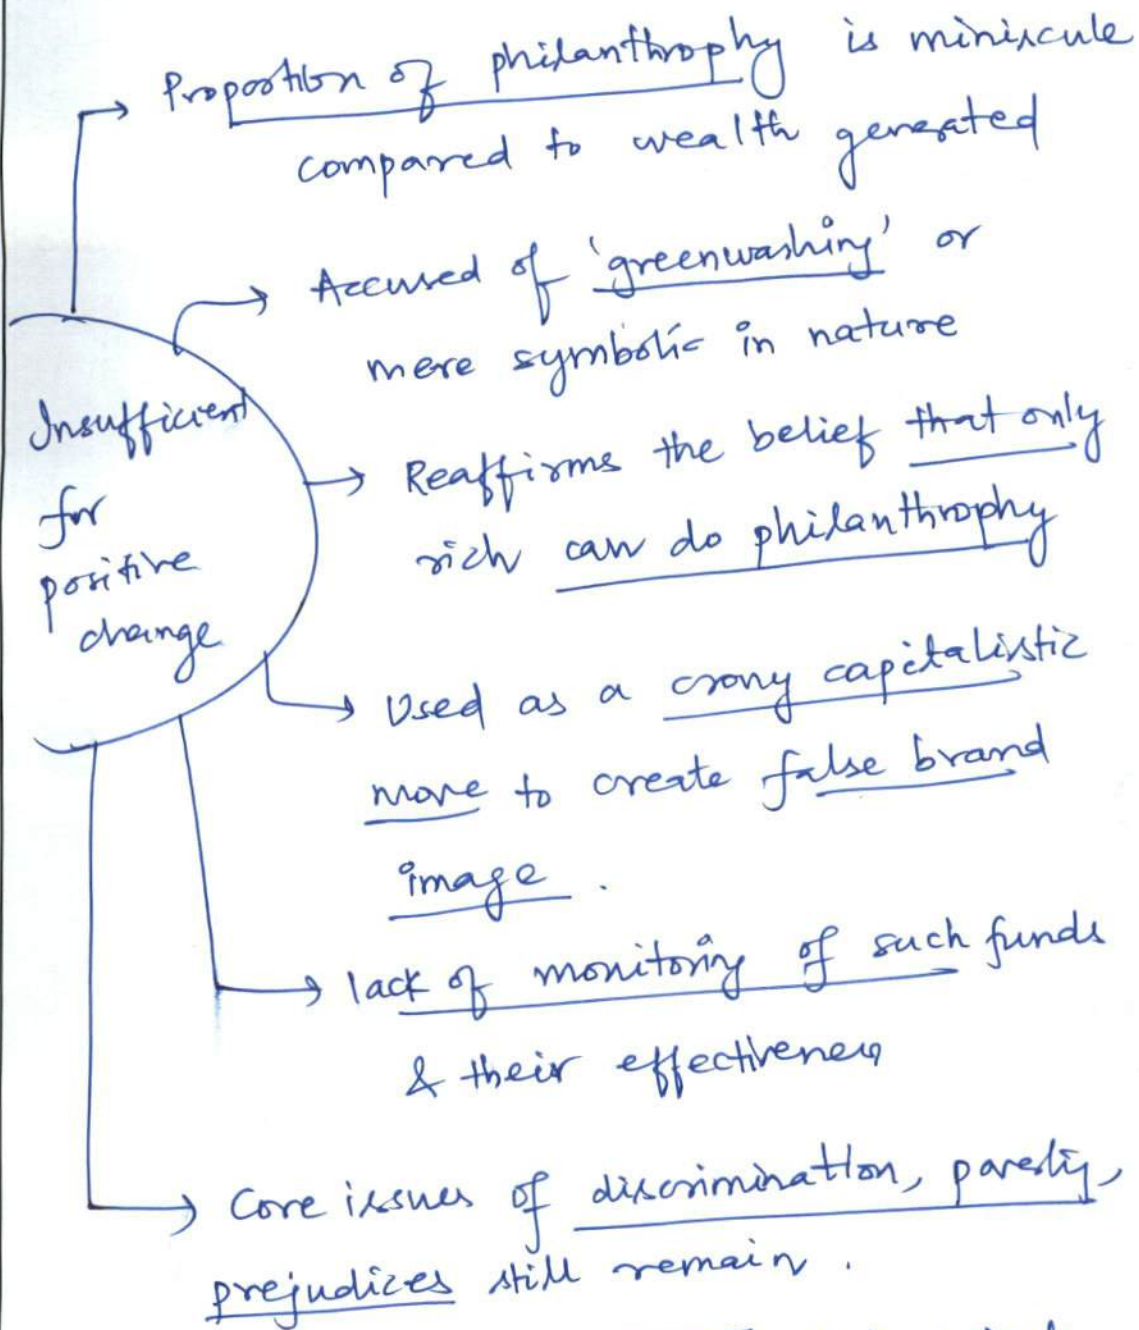 Proportion of philanthrophy is miniscule
compared to wealth generated
Accused of 'greenwashing' or
mere symbolic in nature
Insufficient
for
positive
change
Reaffirms the belief that only
rich can do philanthrophy
Used as a crony capitalistic
move to create false brand
image.
lack of monitoring of such funds
& their effectiveness
Core issues of discrimination, poverty,
prejudices still remain.